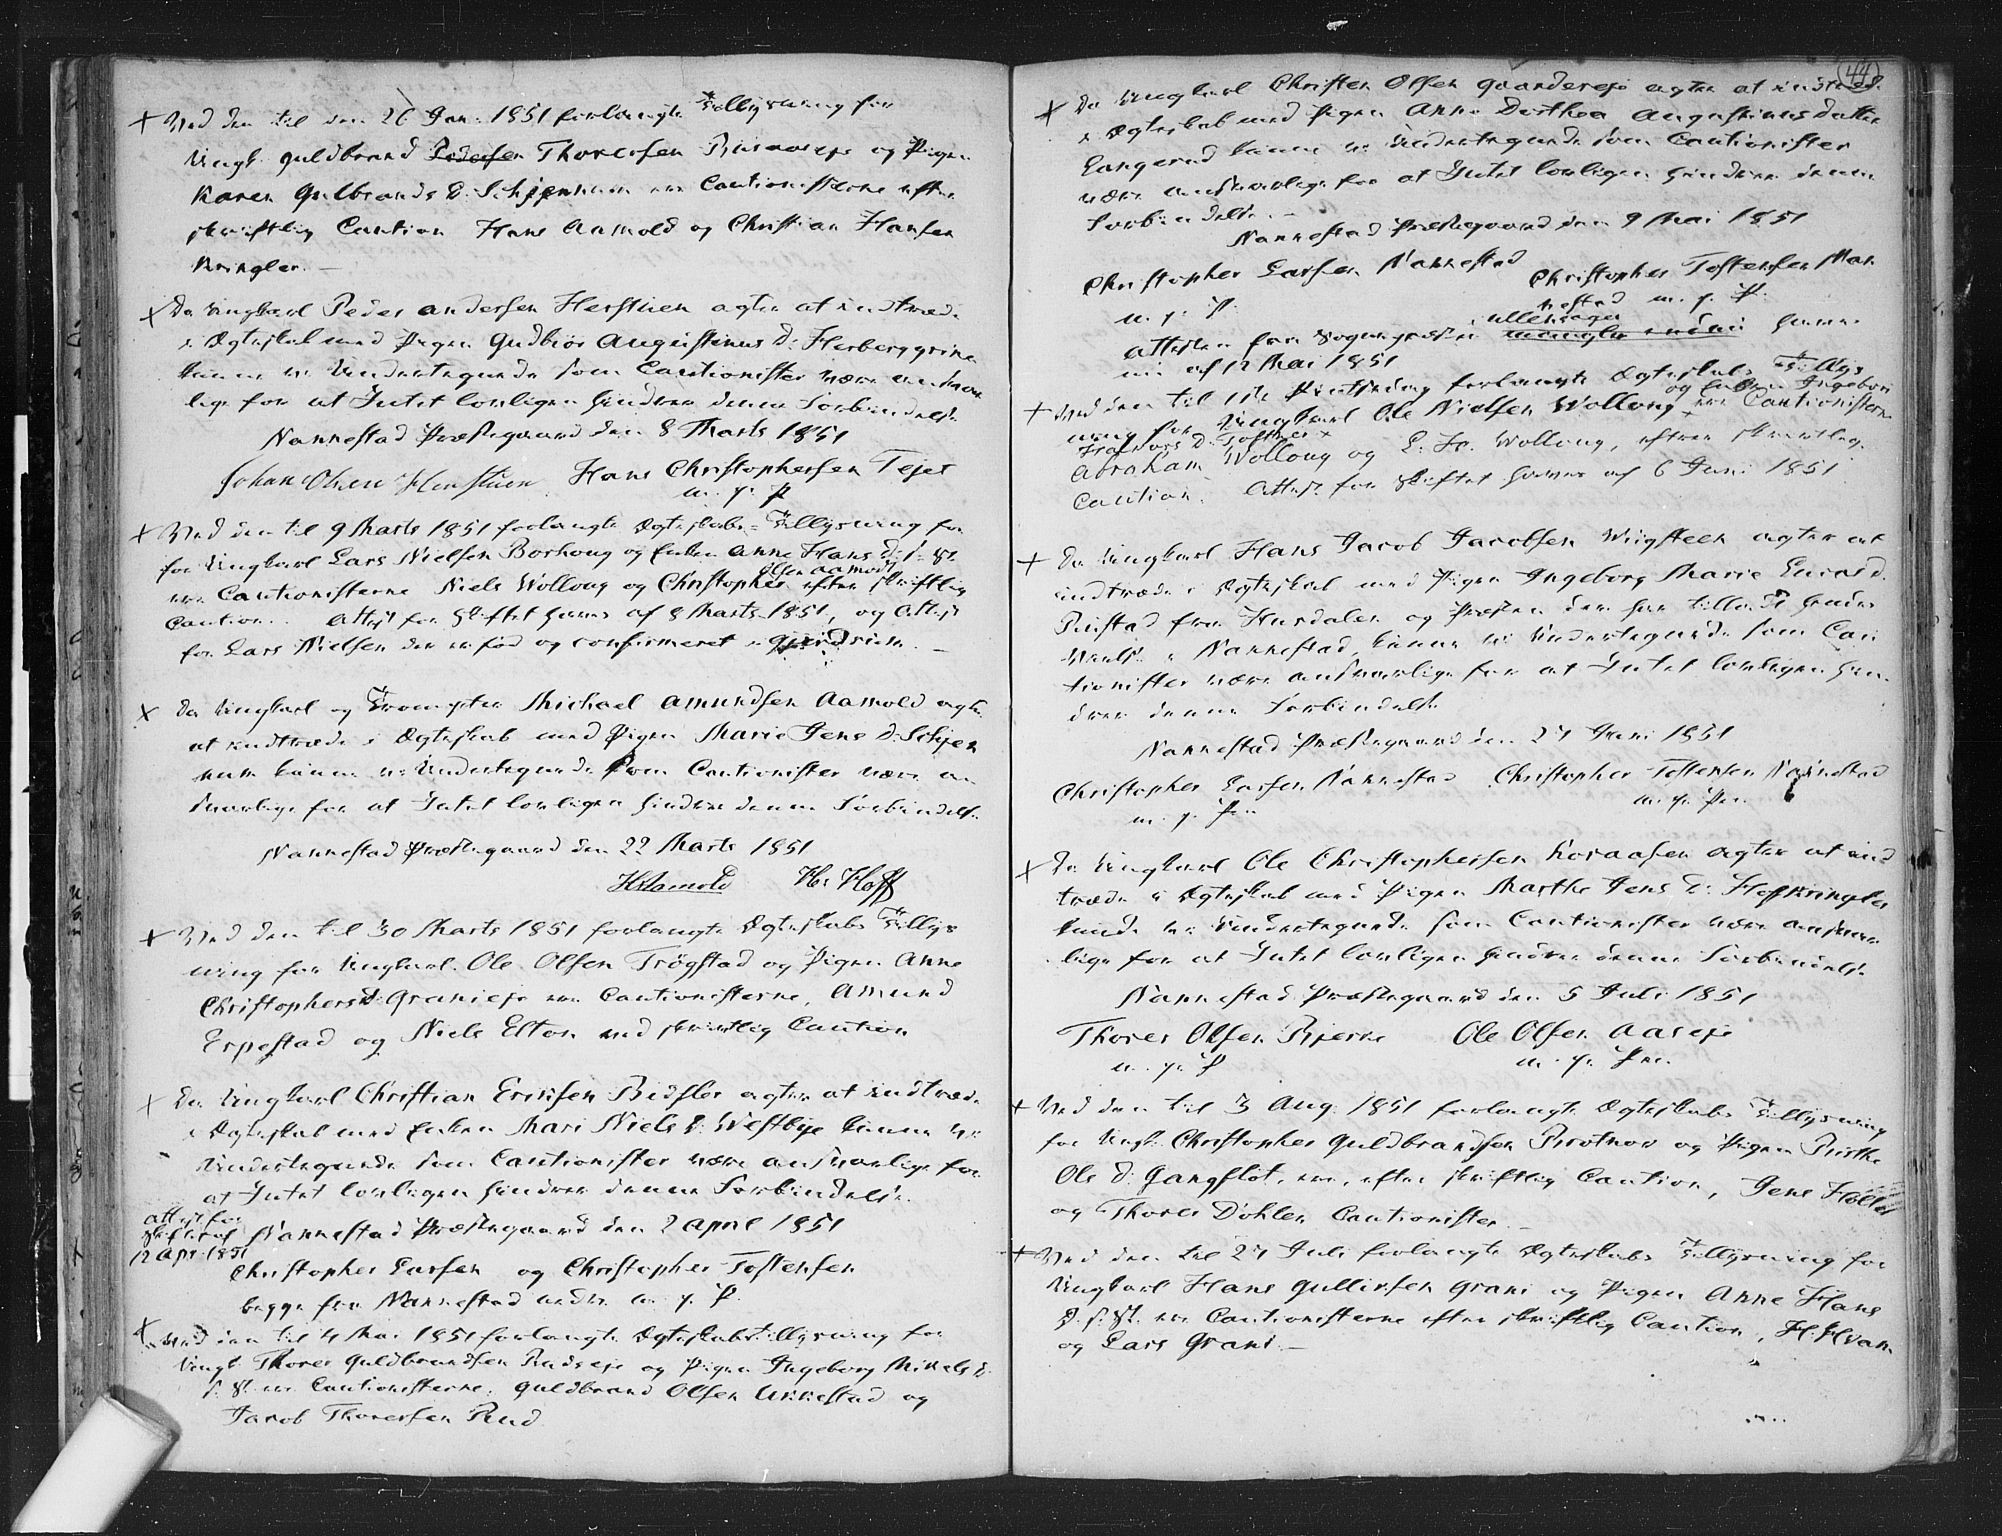 + Ved den til den 26 Jan: 1851 forlangte Tillysning for
Ungk: Guldbrand Pedersen Thoresen og Pigen
Karen Gulbrands D: Schjennum ere Cautionisterne efter
skriftlig Caution Hans Aamold og Christian Hansen
Kringler. —
x Da Ungkarl Peder Andersen Herstuen agter at indtræde
i Ægteskab med Pigen Gudbiør Augustinus D: Herberggrine
kunne vi Undertegnede som Cautionister være ansvar
lige for at Intet lovligen hindrer denne Forbindelse
Nannestad Præstegaard den 8 Marts 1851
Johan Olsen Herstuen Hans Christophersen Tejet
m. f. P
+ Ved den til 9 Marts 1851 forlangte Ægteskabs-Tillysning for
for Ungkarl Lars Nielsen Borhoug og Enken Anne Hans D: s: St.
Olsen Aamodt
ere Cautionisterne Niels Wolloug og Christopher efter skriftlig
Caution. Attest for Skiftet haves af 8 Marts 1851, og Attest
for Lars Nielsen der er fød og confirmeret i Gjerdrum. —
x Da Ungkarl og Trompeter Michael Amundsen Aamold agter
at indtræde i Ægteskab med Pigen Marie Jens D: Schjen
num kunne vi Undertegnede som Cautionister være an
svarlige for at Intet lovligen hindrer denne Forbindelse
Nannestad Præstegaard den 22 Marts 1851
HAamold Hoff
+ Ved den til 30 Marts 1851 forlangte Ægteskabs Tillys
ning for Ungkarl Ole Olsen Trøgstad og Pigen Anne
Christophers D: Granieje ere Cautionisterne, Amund
Erpestad og Niels Elton med skriftlig Caution
x Da Ungkarl Christian Eriksen Bidsler agter at indtræde
i Ægteskab med Enken Mari Niels D: Westbye kunne vi
Undertegnede som Cautionister være ansvarlige for
at Intet lovligen hindrer denne Forbindelse
Attest for
Skiftet af
12 Apr: 1851
Nannestad Præstegaard den 2 April 1851
Christopher Larsen og Christopher Tostensen
begge fra Nannestad m. f. P.
x Ved den til 4 Mai 1851 forlangte Ægteskabs Tillysning for
Ungk: Thores Guldbrandsen Rudseje og Pigen Ingeborg Mikels D:
s: St. ere Cautionisterne: Guldbrand Olsen Ukkestad og
Jacob Thoresen Rud
44
x Da Ungkarl Christen Olsen Quandereje agter at indtræde
i Ægteskab med Pigen Anne Dorthea Augustinus datter
Langerud kunne vi Undertegnede som Cautionister
være ansvarlige for at Intet lovligen hindrer denne
Forbindelse. —
Nannestad Præstegaard den 9 Mai 1851
Christopher Larsen Nannestad Christopher Tostensen Nan
m. f. P. nestad m. f. P.
Ullensager
Attesten fra Sognepræsten mangler endnu haves
nu af 12 Mai 1851
+ Ved den til 1ste Pintsedag forlangte Ægteskabs Tillys
og Enken Ingeborg
ning for Ungkarl Ole Nielsen Wolloug ere Cautionisterne
Abraham Wolloug og L. Wolloug, efter skriftlig
Caution. Attest for Skiftet haves af 6 Juni 1851
+ Da Ungkarl Hans Jacob Jacobsen Wiigsteen agter at
indtræde i Ægteskab med Pigen Ingeborg Marie
Rustad fra Hurdalen og Præsten der har tilladt hendes
Vielse i Nannestad, kunne vi Undertegnede som Cau
tionister være ansvarlige for at Intet lovligen hin
drer denne Forbindelse
Nannestad Præstegaard den 27 Juni 1851
Christopher Larsen Nannestad Christopher Tostensen Nannestad
m. f. Pen m. f. Pen
x Da Ungkarl Ole Christophersen Koraasen agter at ind
træde i Ægteskab med Pigen Marthe Jens D: Hoffkringler
kunde vi Undertegnede som Cautionister være ansvar
lige for at Intet lovligen hindrer denne Forbindelse
Nannestad Præstegaard den 5 Juli 1851
Thores Olsen Bjerke Ole Olsen Aaseje
m. f. P m. f. Pen.
+ Ved den til 3 Aug: 1851 forlangte Ægteskabs Tillysning
for Ungk: Christopher Guldbrandsen Brotnov og Pigen Birthe
Ole D: Gangflot, ere, efter skriftlig Caution, Jens
og Thores Døhlen Cautionister. —
+ Ved den til 27 Juli forlangte Ægteskabs Tillysning for
Ungkarl Hans Gulliksen Grani og Pigen Anne Hans
D. s: St. ere Cautionisterne efter skriftlig Caution, H.
og Lars Grani. —